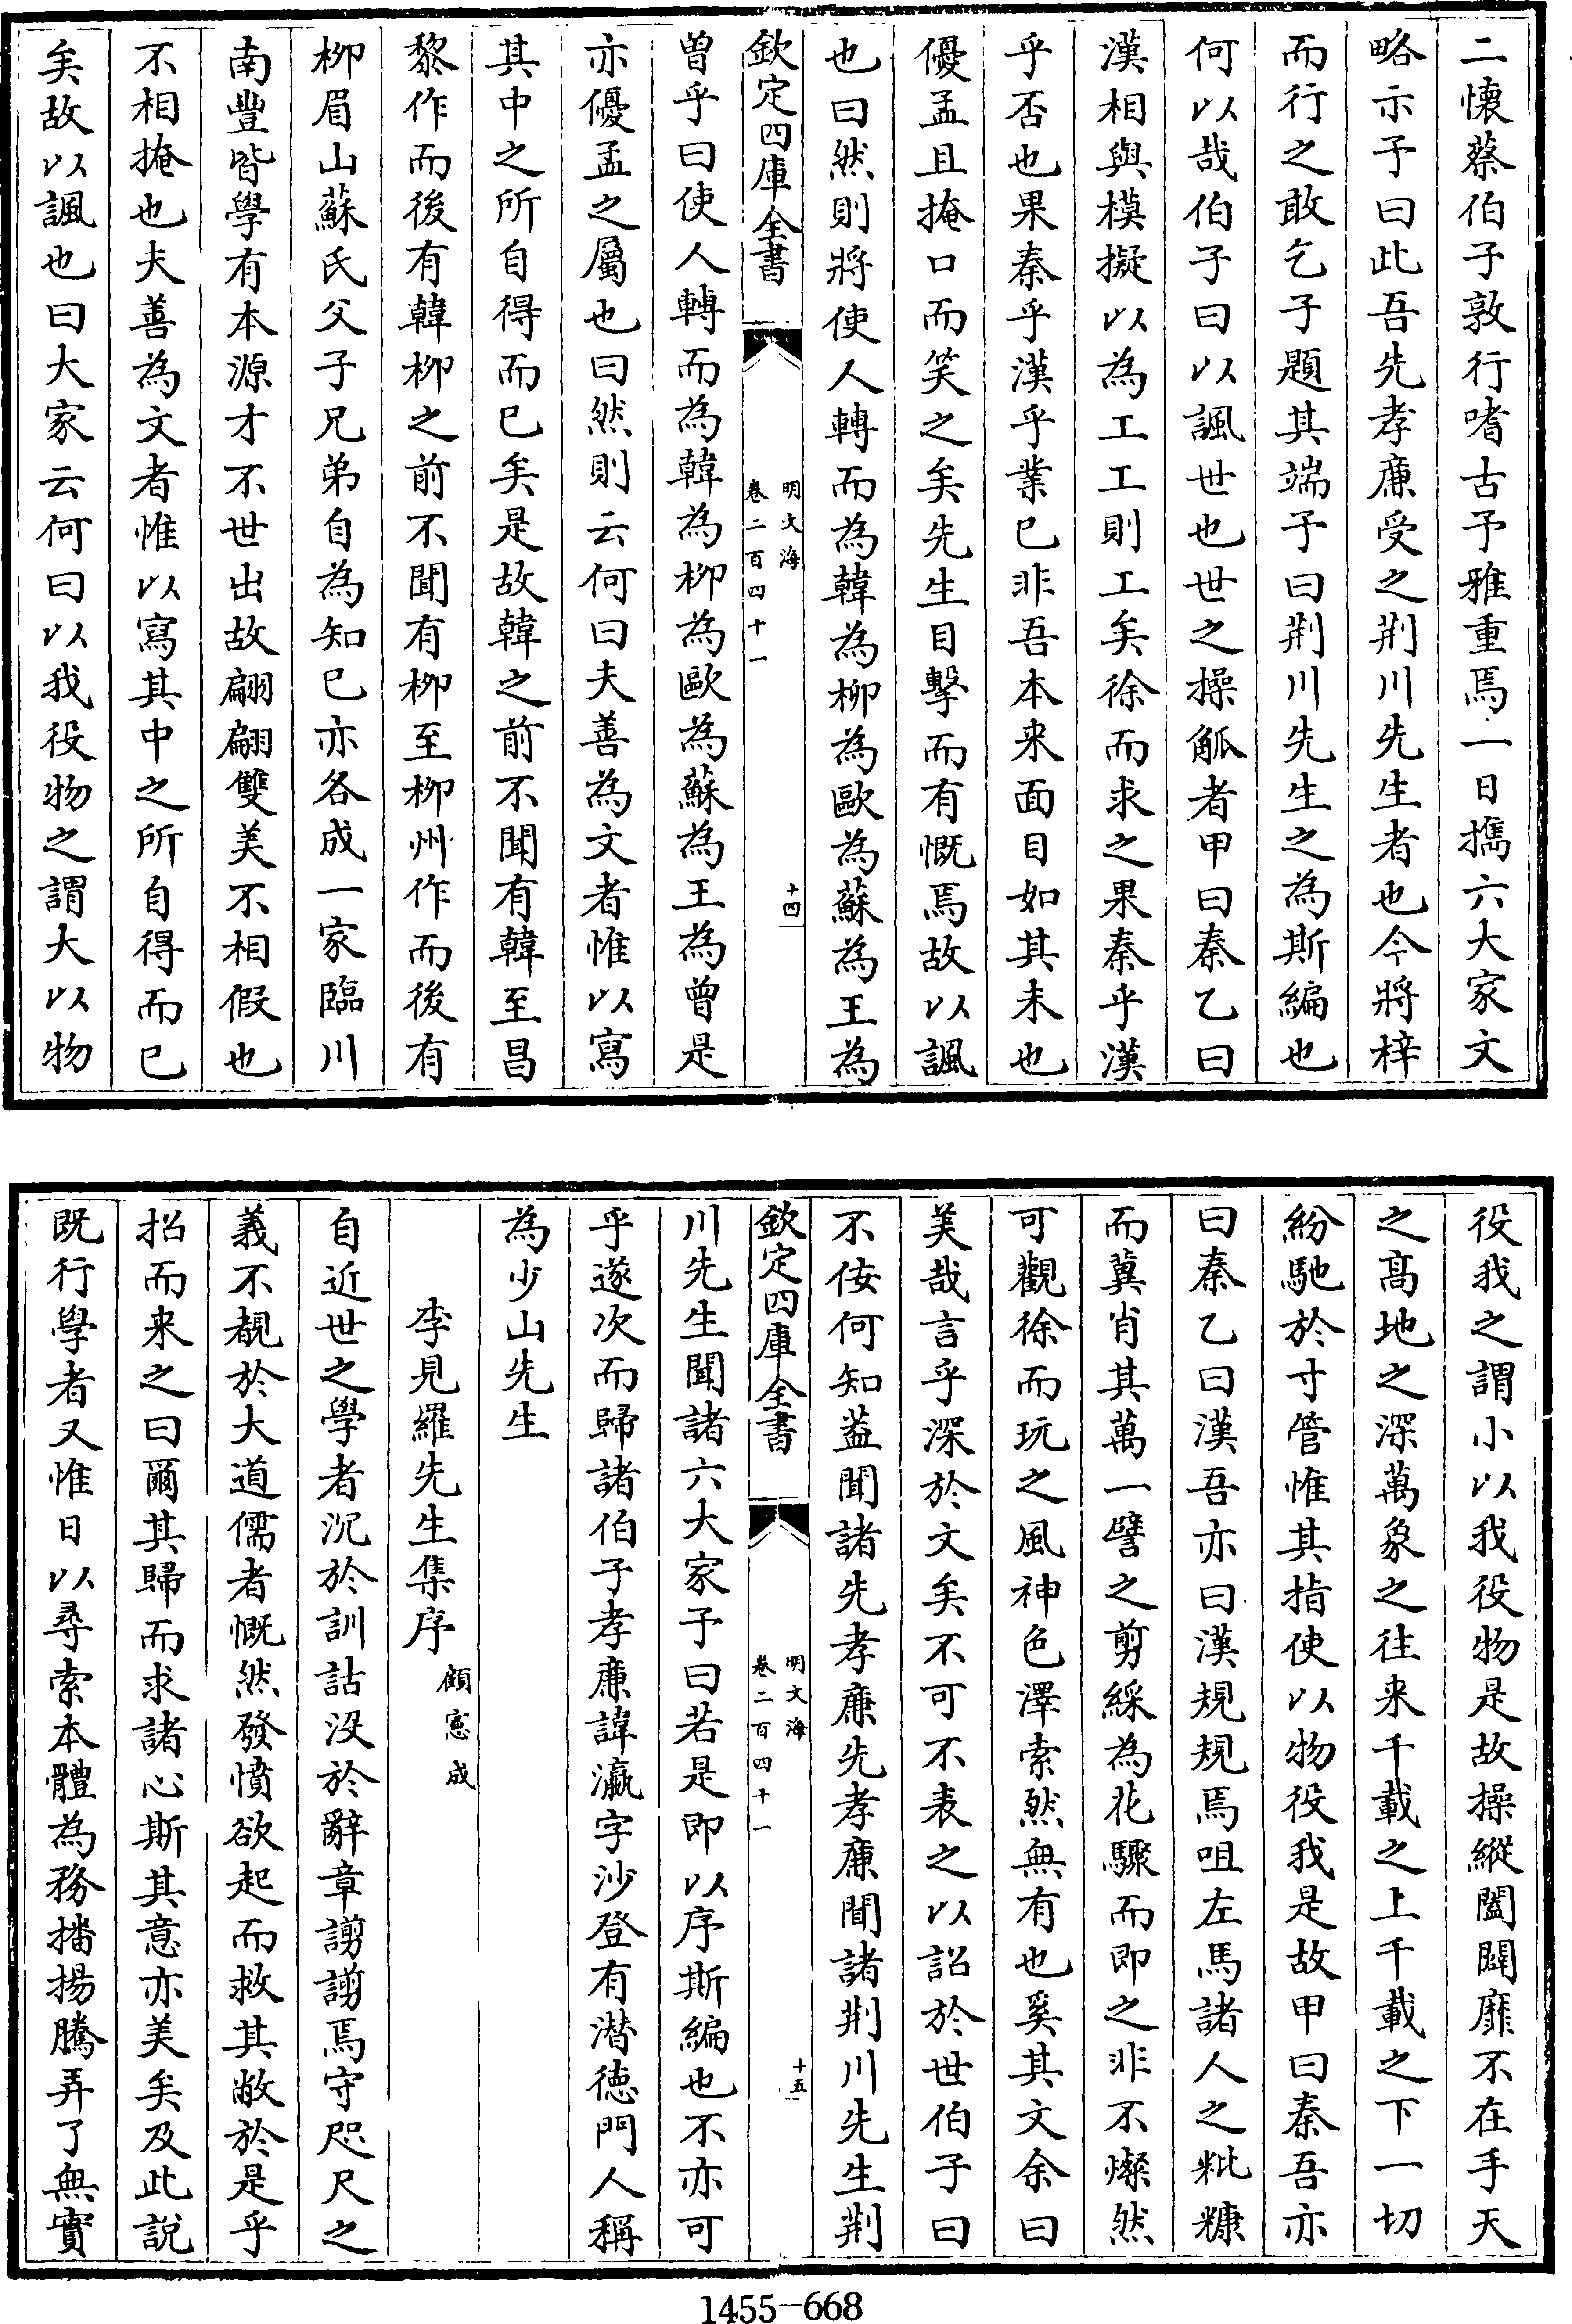 二懷蔡伯子敦行嗜古予雅重焉一日擕六大家文
略示予曰此吾先孝廉受之荆川先生者也今將梓
而行之敢乞子題其端予曰荆川先生之為斯編也
何以哉伯子曰以諷世也世之操觚者甲曰秦乙曰
漢相與模擬以為工工則工矣徐而求之果秦乎漢
乎否也果秦乎漢乎業已非吾本来面目如其未也
優孟且掩口而笑之矣先生目擊而有慨焉故以諷
也曰然則將使人轉而為韓為柳為歐為蘇為王為
欽定四庫全書
明文海
卷二百四十一
十四
曾乎曰使人轉而為韓為柳為歐為蘇為王為曾是
亦優孟之屬也曰然則云何曰夫善為文者惟以寫
其中之所自得而已矣是故韓之前不聞有韓至昌
黎作而後有韓柳之前不聞有柳至柳州作而後有
柳眉山蘇氏父子兄弟自為知已亦各成一家臨川
南豐皆學有本源才不世出故翩翩雙美不相假也
不相掩也夫善為文者惟以寫其中之所自得而已
矣故以諷也曰大家云何曰以我役物之謂大以物
役我之謂小以我役物是故操縱闔闢靡不在手天
之髙地之深萬象之往来千載之上千載之下一切
紛馳於寸管惟其指使以物役我是故甲曰秦吾亦
曰秦乙曰漢吾亦曰漢規規焉咀左馬諸人之粃糠
而冀肖其萬一譬之剪綵為花驟而即之非不燦然
可觀徐而玩之風神色澤索然無有也奚其文余曰
美哉言乎深於文矣不可不表之以詔於世伯子曰
不佞何知葢聞諸先孝廉先孝廉聞諸荆川先生荆
欽定四庫全書
明文海
卷二百四十一
十五
川先生聞諸六大家予曰若是即以序斯編也不亦可
乎遂次而歸諸伯子孝廉諱瀛字沙登有潜德門人稱
為少山先生
李見羅先生集序
顧憲成
自近世之學者沉於訓詁没於辭章謭謭焉守咫尺之
義不覩於大道儒者慨然發憤欲起而救其敝於是乎
招而来之曰爾其歸而求諸心斯其意亦美矣及此說
既行學者又惟日以尋索本體為務播揚騰弄了無實
1455—668